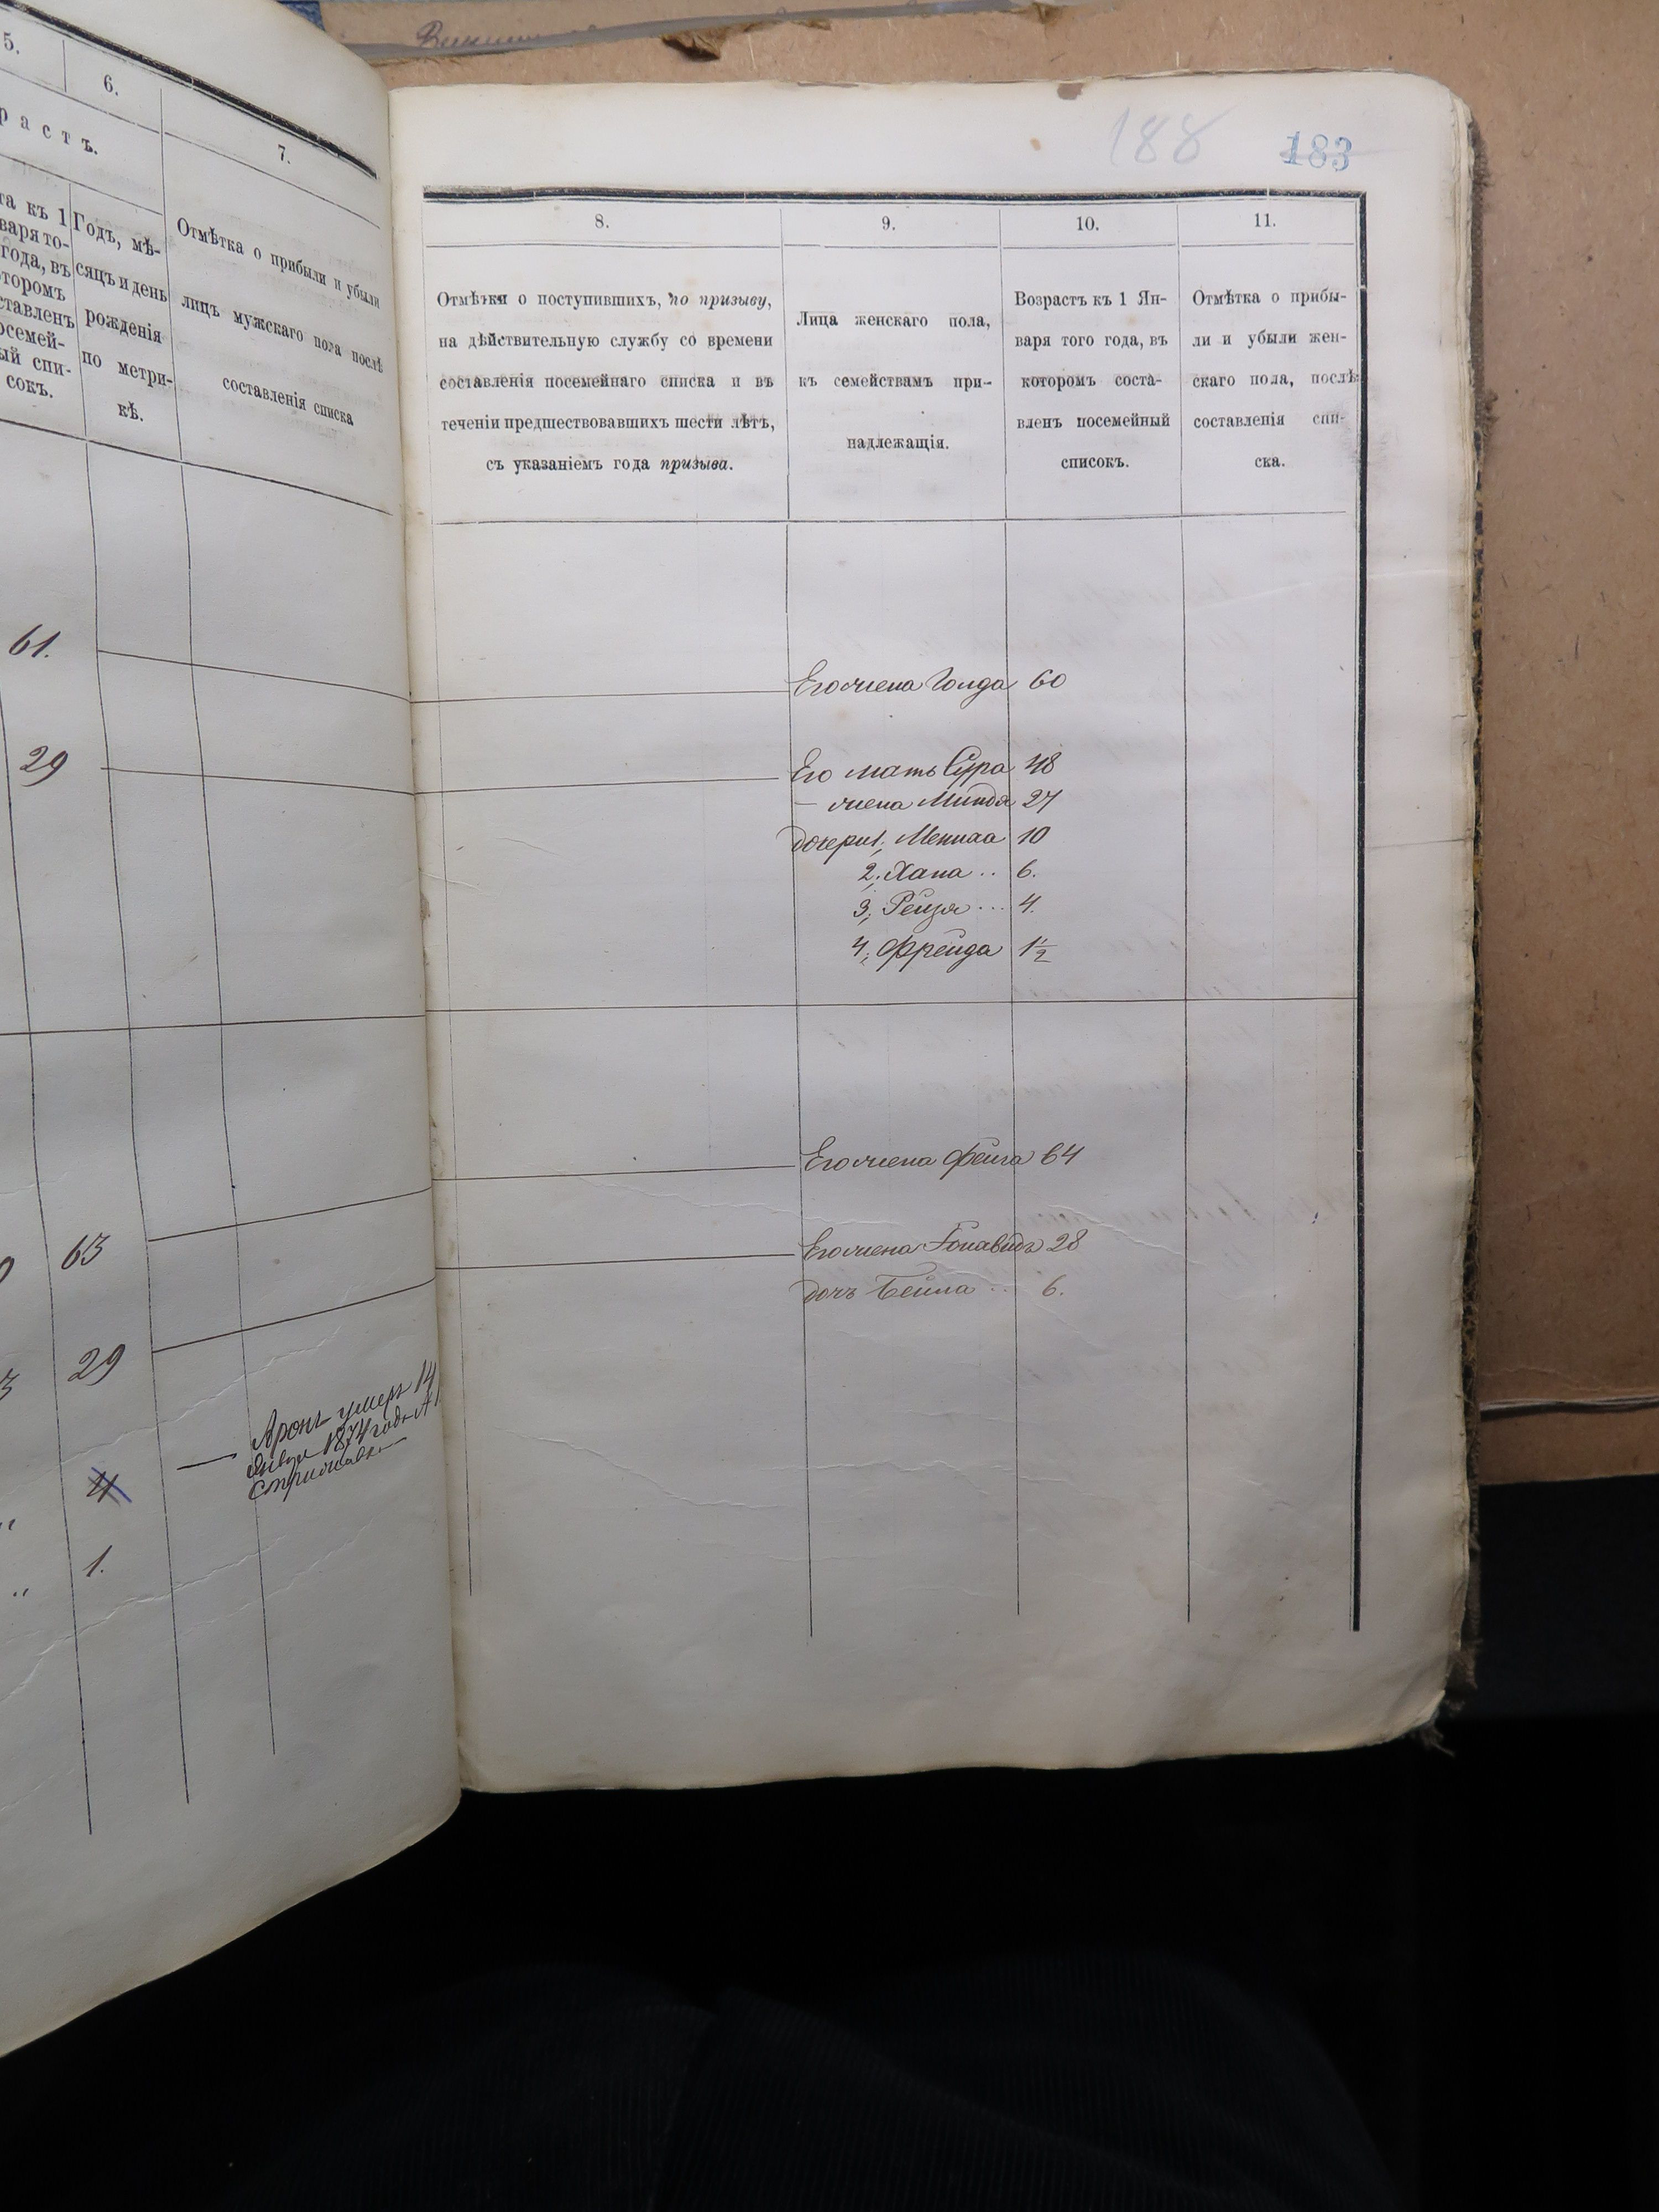 5.
6.
7.
растъ.
та къ 1
варя то-
года, въ
оторомъ
ставленъ
осемей-
ый спи-
сокъ.
Годъ, мѣ-
сяцъ и день
рожденія
по метри-
кѣ.
Отмѣтка о прибыли и убыли
лицъ мужскаго пола послѣ
составленія списка
61.
29
63
29
Аронъ умеръ 14
Января 1874 года
4
1.
188
183
8.
9.
10.
11.
Отмѣтки о поступившихъ, по призыву,
на дѣйствительную службу со времени
составленія посемейнаго списка и въ
теченіи предшествовавшихъ шести лѣтъ,
съ указаніемъ года призыва.
Лица женскаго пола,
къ семействамъ при-
надлежащія.
Возрастъ къ 1 Ян-
варя того года, въ
которомъ соста-
вленъ посемейный
списокъ.
Отмѣтка о прибы-
ли и убыли жен-
скаго пола, послѣ
составленія спи-
ска.
Его жена Голда 60
Его мать Сура 48
— жена Миндя 27
дочери 1, Менихa 10
2, Хана .. 6.
3, Рейзя ... 4.
4, Фрейда 1½
Его жена Фейга 64
Его жена 28
дочь Бейла .. 6.